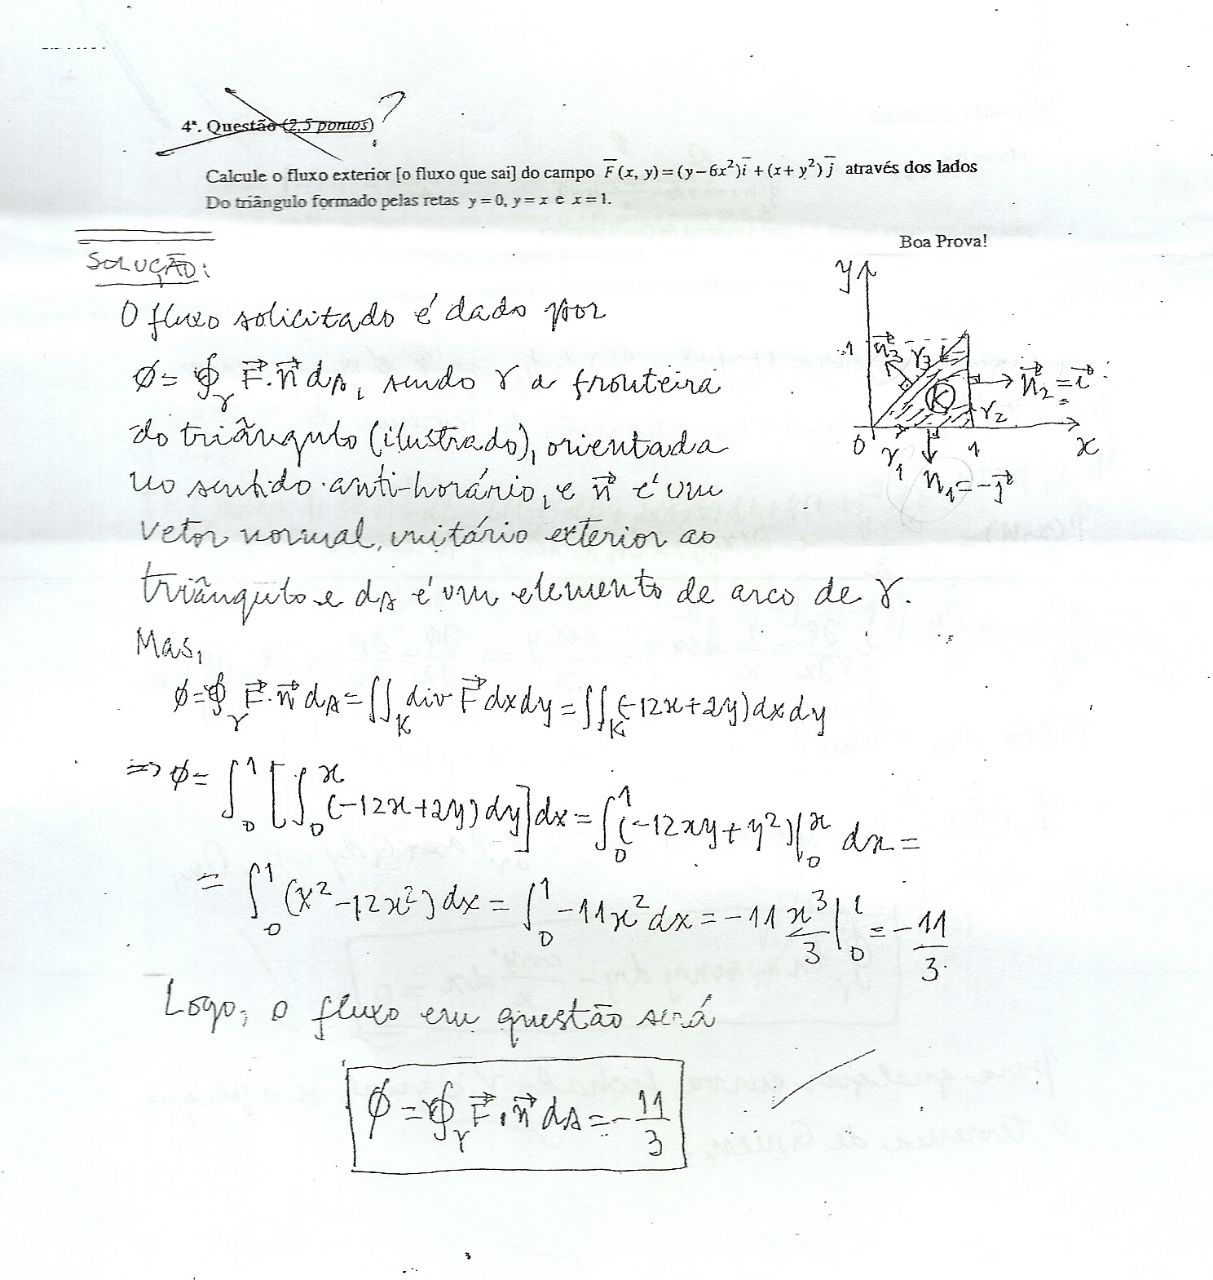 4ª. Questão (2,5 pontos) ?
Calcule o fluxo exterior [o fluxo que sai] do campo F̅(x, y) = (y − 6x²)i̅ + (x + y²)j̅ através dos lados
Do triângulo formado pelas retas y = 0, y = x e x = 1.
Boa Prova!
SOLUÇÃO:
O fluxo solicitado é dado por
Ø = ∮_γ F⃗.n⃗ ds, sendo γ a fronteira
do triângulo (ilustrado), orientada
no sentido anti-horário, e n⃗ é um
vetor normal, unitário exterior ao
triângulo e ds é um elemento de arco de γ.
y
1 n⃗3 γ3
K n⃗2 = i⃗
γ2
0 γ1 1 x
n⃗1 = −j⃗
Mas,
Ø = ∮_γ F⃗.n⃗ ds = ∬_K div F⃗ dxdy = ∬_K (−12x+2y)dxdy
⇒ Ø = ∫₀¹ [∫₀ˣ (−12x+2y)dy]dx = ∫₀¹ (−12xy+y²)|₀ˣ dx =
= ∫₀¹ (x²−12x²)dx = ∫₀¹ −11x²dx = −11 x³/3 |₀¹ = −11/3.
Logo, o fluxo em questão será
Ø = ∮_γ F⃗.n⃗ ds = −11/3